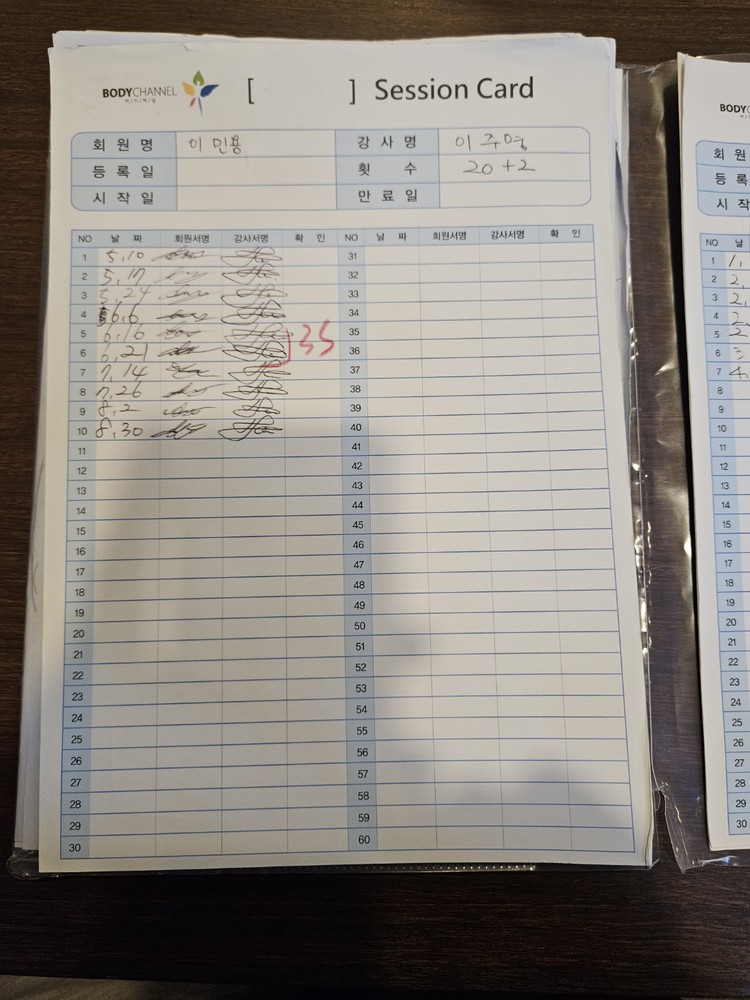 BODYCHANNEL [ ] Session Card
회원명 이민용 강사명 이주영
등록일 횟수 20+2
시작일 만료일
NO 날짜 회원서명 강사서명 확인 NO 날짜 회원서명 강사서명 확인
1 5,10 31
2 5,17 32
3 5,24 33
4 6,6 34
5 6,16 35
6 6,21 35 36
7 7,14 37
8 7,26 38
9 8,2 39
10 8,30 40
11 41
12 42
13 43
14 44
15 45
16 46
17 47
18 48
19 49
20 50
21 51
22 52
23 53
24 54
25 55
26 56
27 57
28 58
29 59
30 60
BODY
회원
등록
시작
NO 날
1 1,
2 2,
3 2,
4 2
5 2
6 3
7 4,
8
9
10
11
12
13
14
15
16
17
18
19
20
21
22
23
24
25
26
27
28
29
30